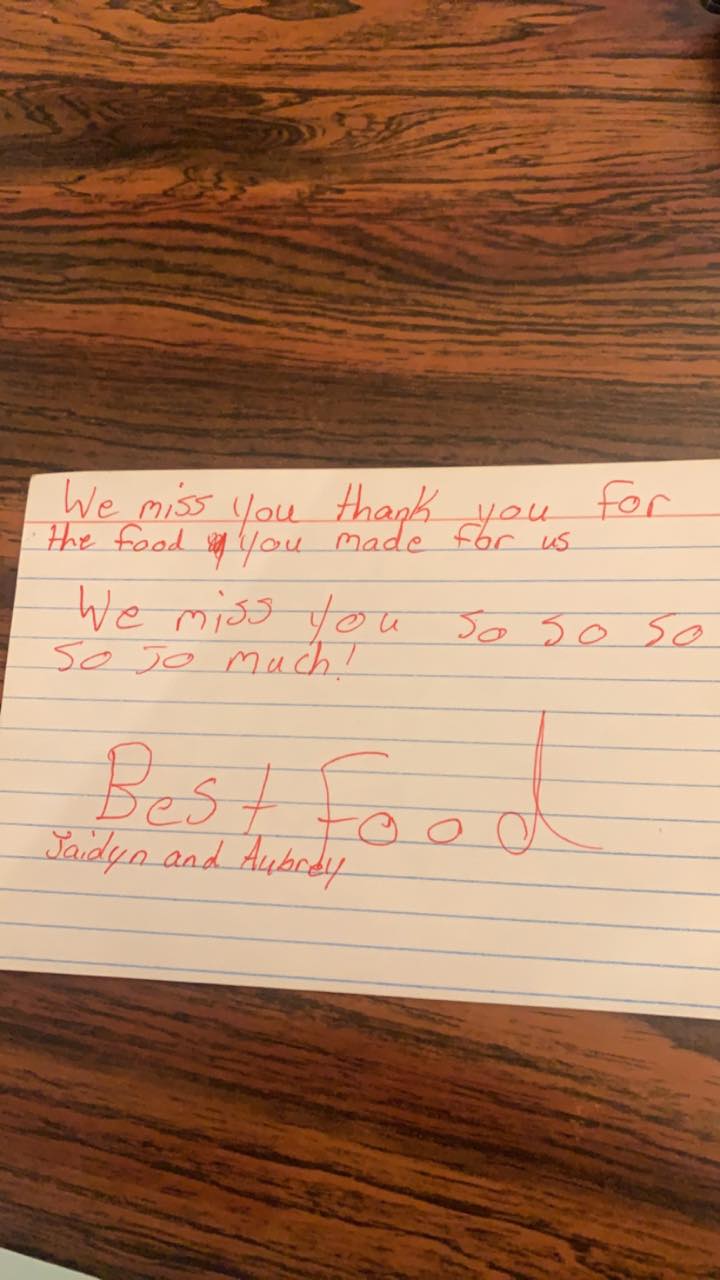 We miss you thank you for
the food you made for us
We miss you so so so
so so much!
Best Food
Jaidyn and Aubrey